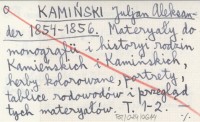 O KAMIŃSKI Juljan Aleksan-
der 1854-1856. Materyały do
monografii i historyi rodzin
Kamieńskich i Kamińskich,
herby kolorowane, portrety,
tablice rodowodów i przegląd
tych materyałów. T. 1-2.